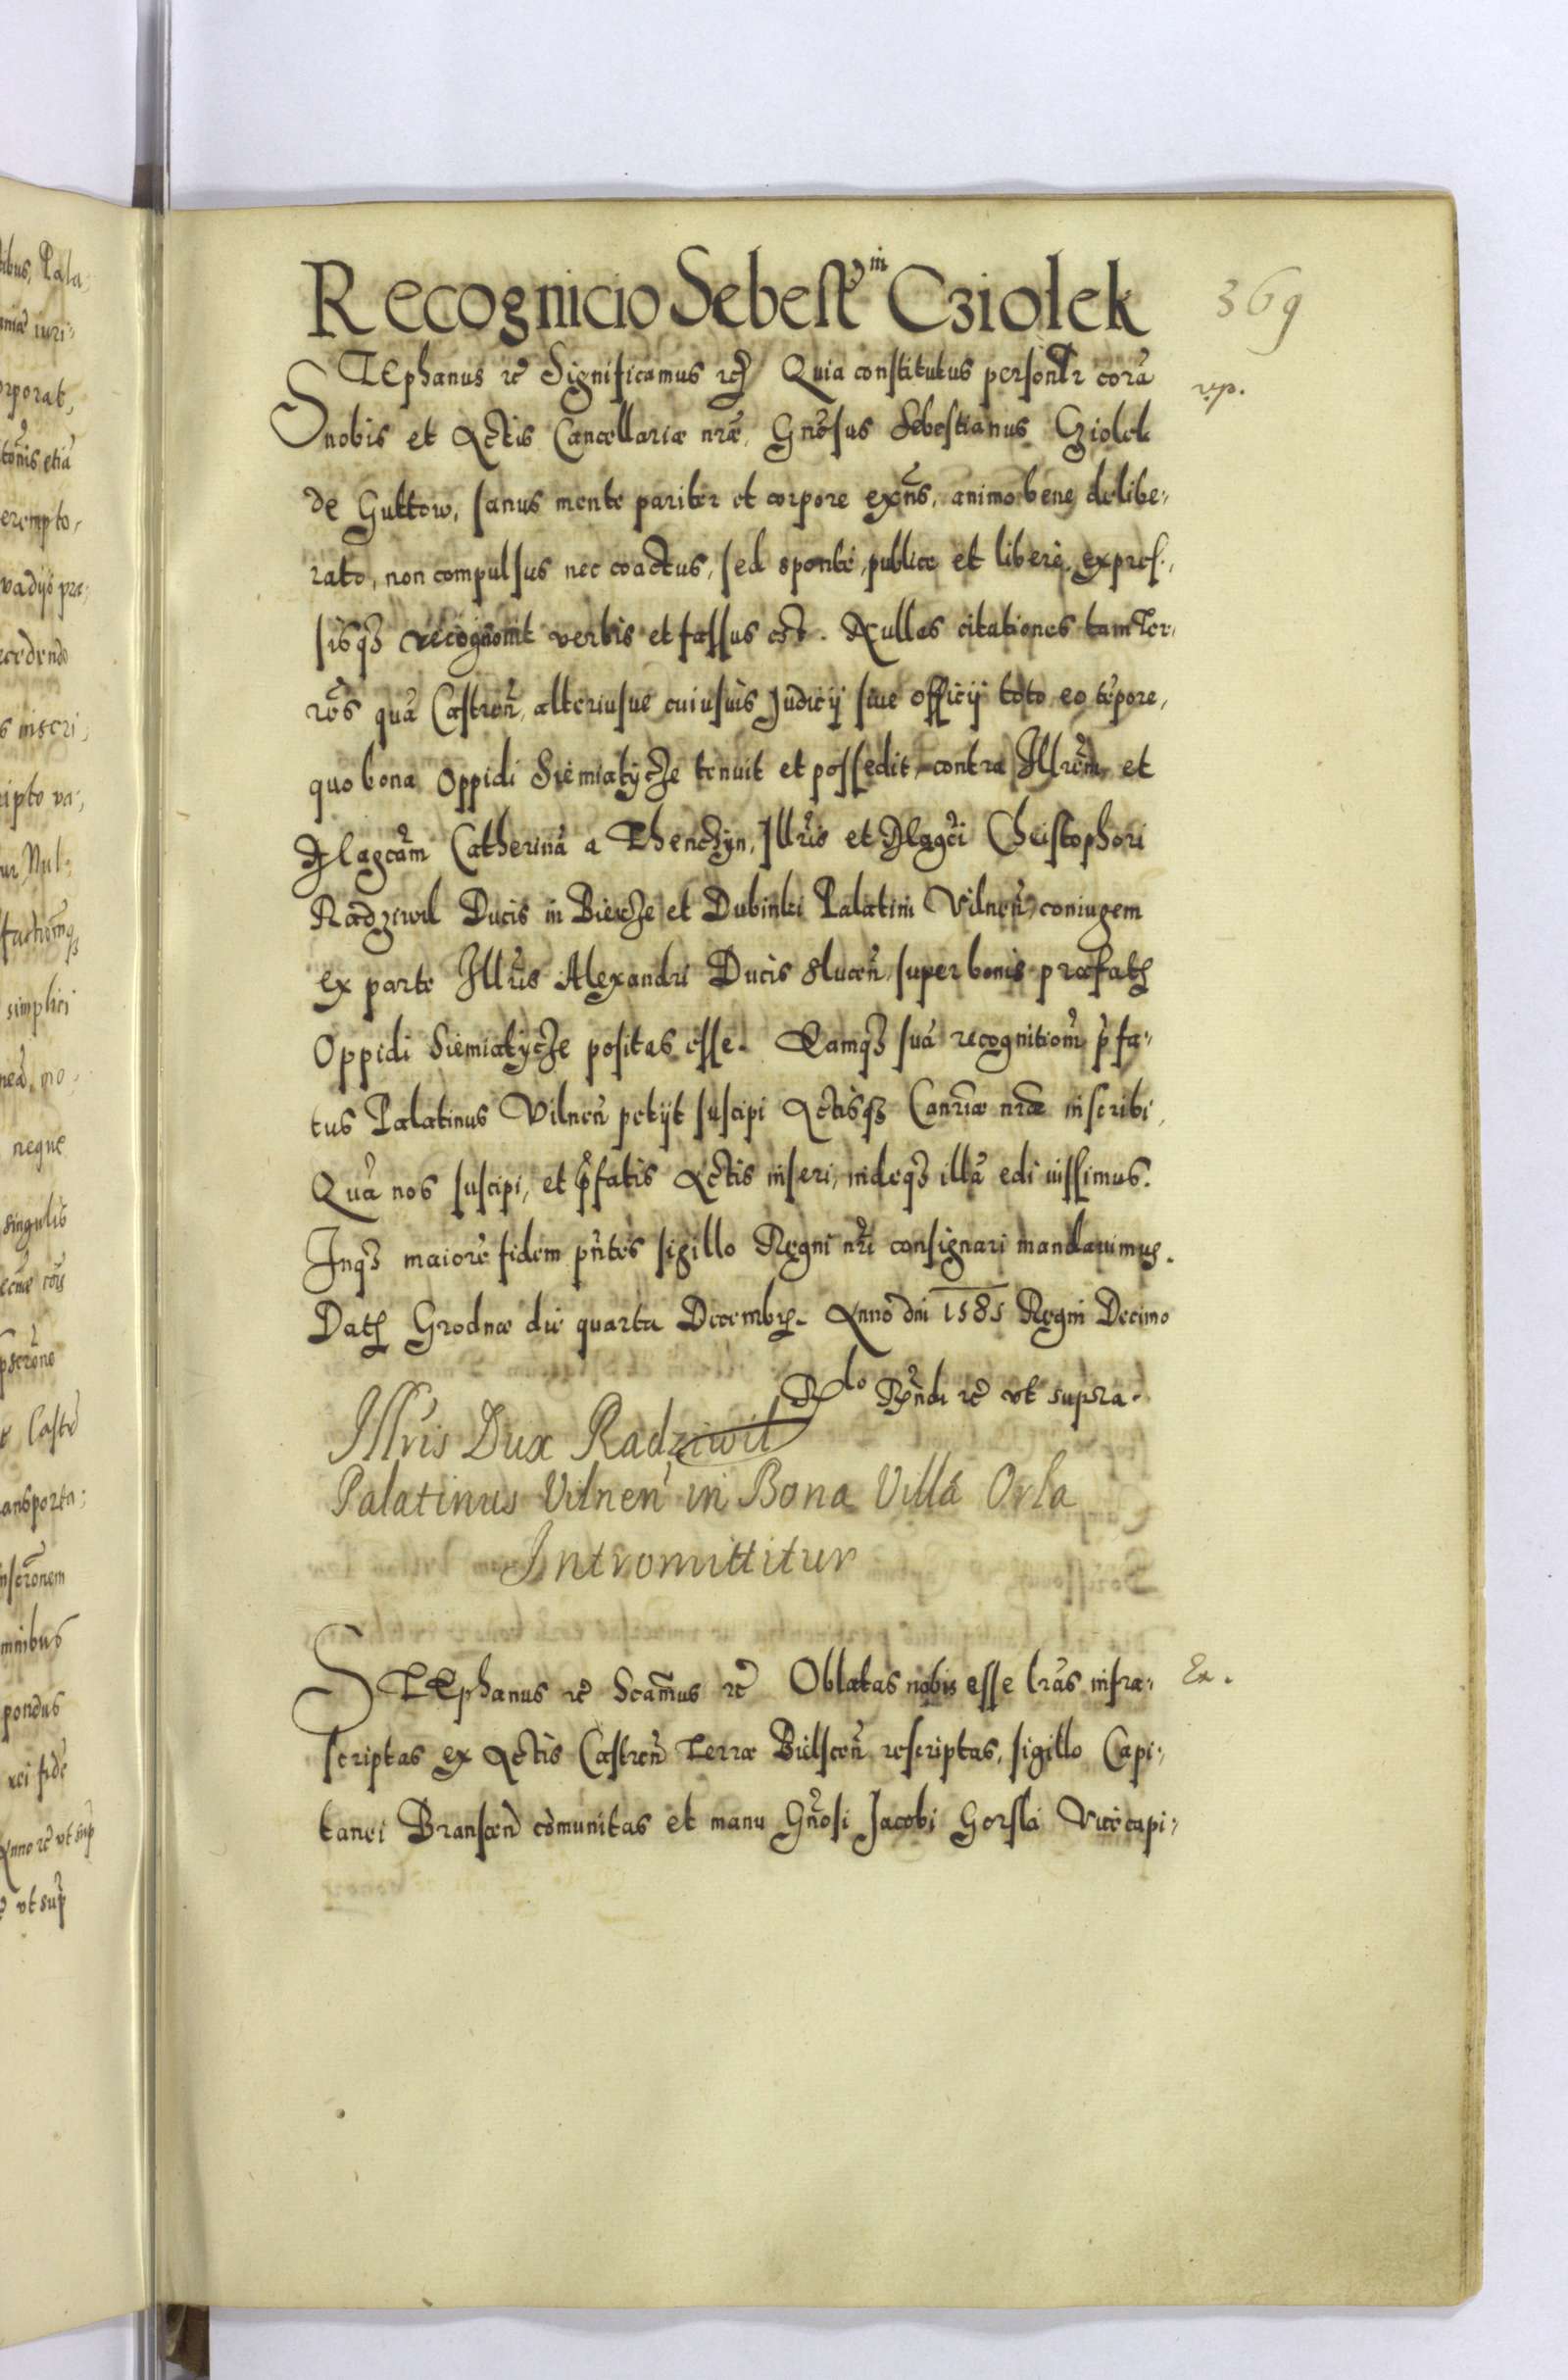 Recognicio Sebestin Cziołek
369
STEphanus etc Significamus etc Quia constitutus personlr corã
rp.
nobis et Actis Cancellariæ nræ, Gnosus Sebestianus Cziolek
de Guttow, sanus mente pariter et corpore exns, animo bene delibe-
rato, non compulsus nec coactus, sed sponte, publice et libere, expres-
sisq3 recognouit verbis et fassus est. Nullas citationes tam Ter-
res quã Castren, alteriusue cuiusuis Judicij siue officij toto eo tẽpore,
quo bona oppidi Siemiatycze tenuit et possedit, contra Illrem et
Magcam Catherinã a Thenczyn, Illris et Magci Christophori
Radziwil Ducis in Bierze et Dubinki Palatini Vilnen, coniugem
ex parte Illris Alexandri Ducis Slucen, super bonis præfat
Oppidi Siemiatycze positas esse. Eamq3 suã recognitionẽ pfa-
tus Palatinus Vilnen petijt suscipi Actisq3 Canriæ nræ inscribi,
Quã nos suscipi, et pfatis Actis inseri, indeq3 illã edi iussimus.
Inq3 maiorẽ fidem pntes sigillo Regni nri consignari mandauimus.
Dat Grodnæ die quarta Decembr. Anno dni 1585 Regni Decimo
Rlo Rndi etc vt supra.
Illris Dux Radziwil
Palatinus Vilnen in Bona Villã Orla
Intromittitur
STEphanus etc Scamus etc Oblatas nobis esse lras infra-
Ex.
scriptas ex Actis Castren Terræ Bielscen rescriptas, sigillo Capi-
tanei Branscen cõmunitas et manu Gnosi Jacobi Gorski Vicecapi-